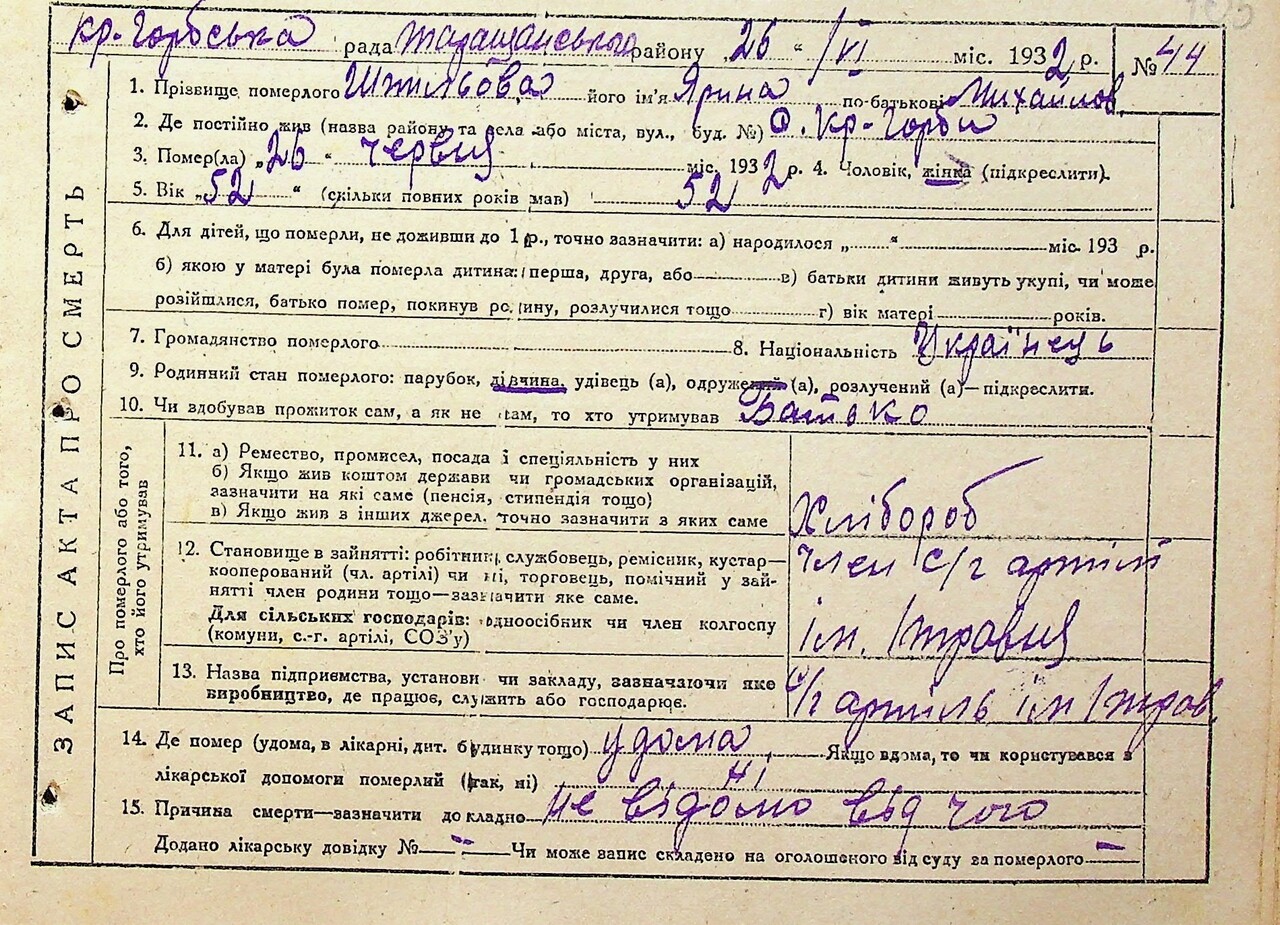 кр-Горбська рада Таращанського району „26 “ /VI міс. 1932 р. № 44
1. Прізвище померлого Шпильова його ім'я Ярина по-батькові Михайлов.
2. Де постійно жив (назва району та села або міста, вул., буд. №) с. Кр-Горби
3. Помер(ла) „26 “ червня міс. 1932 р. 4. Чоловік, жінка (підкреслити).
5. Вік „52 “ (скільки повних років мав) 52
6. Для дітей, що померли, не доживши до 1 р., точно зазначити: а) народилося „ “ міс. 193 р.
б) якою у матері була померла дитина: перша, друга, або в) батьки дитини живуть укупі, чи може
розійшлися, батько помер, покинув родину, розлучилися тощо г) вік матері років.
7. Громадянство померлого 8. Національність Українець
9. Родинний стан померлого: парубок, дівчина, удівець (а), одружений (а), розлучений (а)—підкреслити.
10. Чи здобував прожиток сам, а як не сам, то хто утримував Батько
ЗАПИС АКТА ПРО СМЕРТЬ
Про померлого або того,
хто його утримував
11. а) Ремество, промисел, посада і спеціяльність у них
б) Якщо жив коштом держави чи громадських організацій,
зазначити на які саме (пенсія, стипендія тощо)
в) Якщо жив з інших джерел, точно зазначити з яких саме
Хлібороб
12. Становище в зайнятті: робітник, службовець, ремісник, кустар—
кооперований (чл. артілі) чи ні, торговець, помічний у зай-
нятті член родини тощо—зазначити яке саме.
Для сільських господарів: одноосібник чи член колгоспу
(комуни, с.-г. артілі, СОЗ'у)
член с/г артілі
ім. 1 травня
13. Назва підприємства, установи чи закладу, зазначаючи яке
виробництво, де працює, служить або господарює.
с/г артіль ім 1 трав.
14. Де помер (удома, в лікарні, дит. будинку тощо) удома Якщо вдома, то чи користувався з
лікарської допомоги померлий (так, ні) ні
15. Причина смерти—зазначити докладно не відомо від чого
Додано лікарську довідку № — Чи може запис складено на оголошеного від суду за померлого —